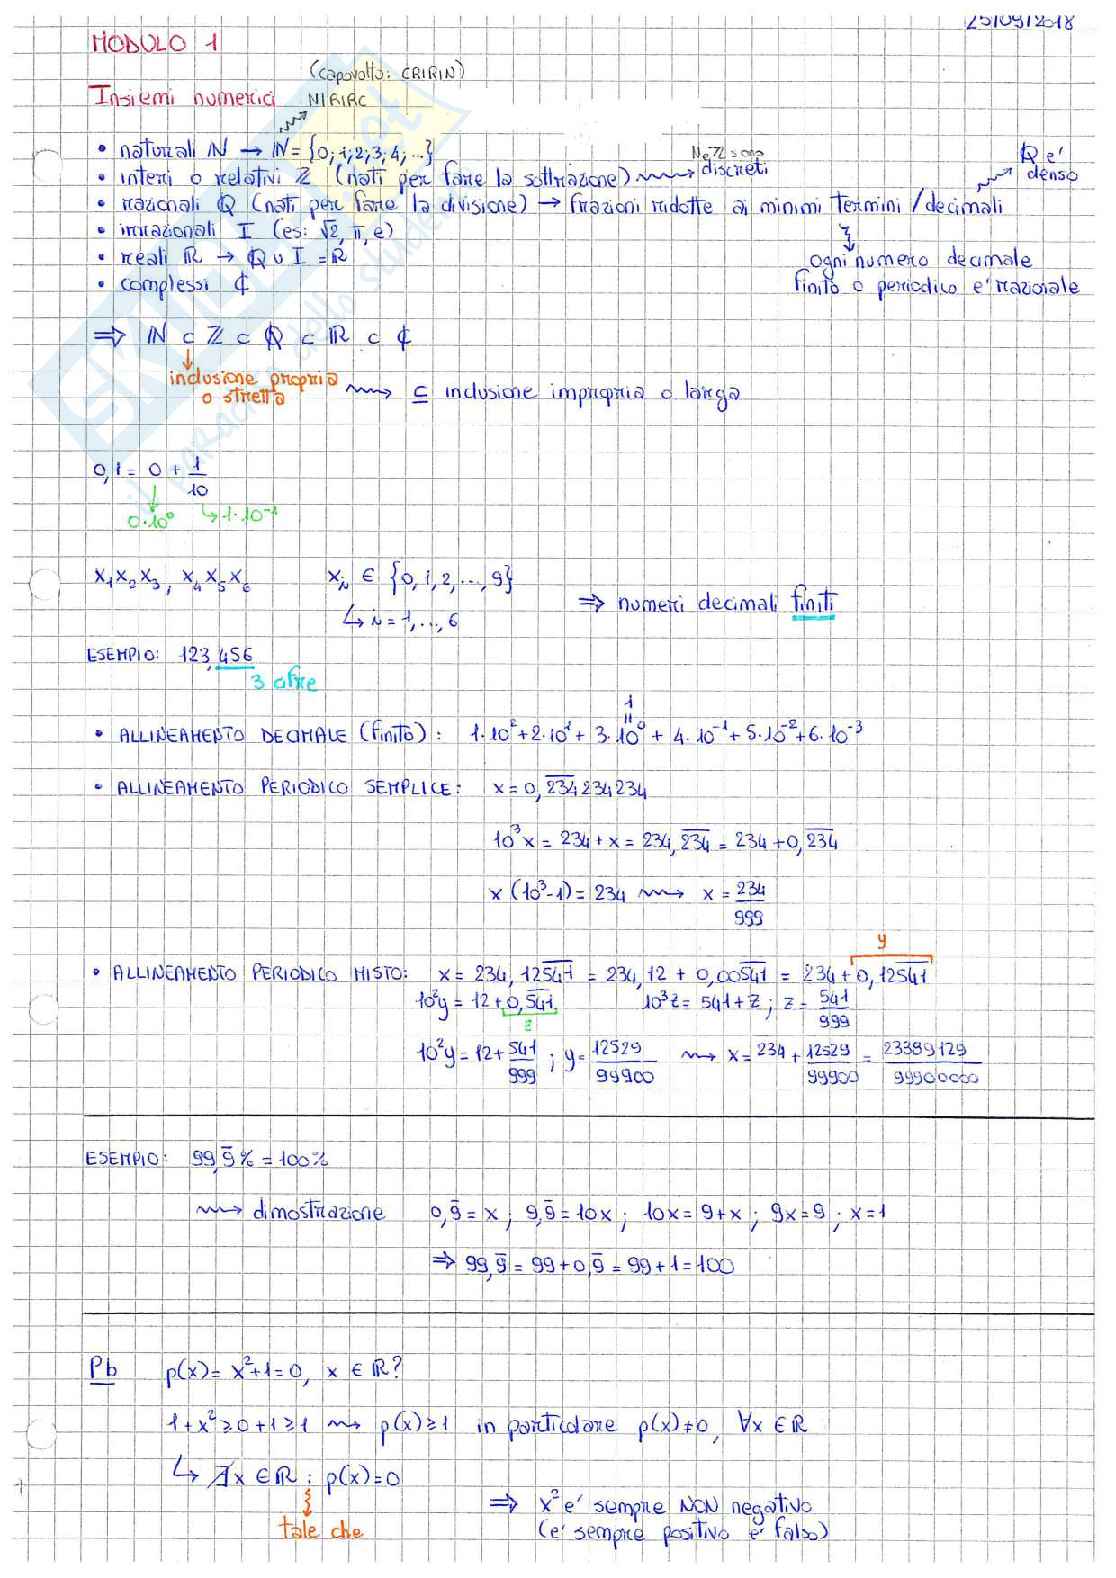 25/09/2018
MODULO 1
(capovolto: CRIRIN)
Insiemi numerici NIRIRC
• naturali ℕ → ℕ = {0; 1; 2; 3; 4; ...}
• interi o relativi ℤ (nati per fare la sottrazione) ⟿ ℕ e ℤ sono discreti
• razionali ℚ (nati per fare la divisione) → frazioni ridotte ai minimi termini / decimali ⟿ ℚ e' denso
• irrazionali I (es: √2, π, e)
ogni numero decimale
• reali ℝ → ℚ ∪ I = ℝ
finito o periodico e' razionale
• complessi ℂ
⇒ ℕ ⊂ ℤ ⊂ ℚ ⊂ ℝ ⊂ ℂ
inclusione propria
o stretta ⟿ ⊆ inclusione impropria o larga
0,1 = 0 + 1/10
0·10⁰ ↳ 1·10⁻¹
x₁x₂x₃, x₄x₅x₆ xᵢ ∈ {0, 1, 2, ..., 9}
↳ i = 1, ..., 6 ⇒ numeri decimali finiti
ESEMPIO: 123,456
3 cifre
1
• ALLINEAMENTO DECIMALE (finito): 1·10² + 2·10¹ + 3·10⁰ + 4·10⁻¹ + 5·10⁻² + 6·10⁻³
• ALLINEAMENTO PERIODICO SEMPLICE: x = 0,2̅3̅4̅234234
10³x = 234 + x = 234,2̅3̅4̅ = 234 + 0,2̅3̅4̅
x(10³-1) = 234 ⟿ x = 234/999
y
• ALLINEAMENTO PERIODICO MISTO: x = 234,125̅4̅1̅ = 234,12 + 0,005̅4̅1̅ = 234 + 0,125̅4̅1̅
10²y = 12 + 0,5̅4̅1̅ 10³z = 541 + z; z = 541/999
z
10²y = 12 + 541/999; y = 12529/99900 ⟿ x = 234 + 12529/99900 = 23389129/99900000
ESEMPIO: 99,9̅% = 100%
⟿ dimostrazione 0,9̅ = x; 9,9̅ = 10x; 10x = 9 + x; 9x = 9; x = 1
⇒ 99,9̅ = 99 + 0,9̅ = 99 + 1 = 100
Pb p(x) = x² + 1 = 0, x ∈ ℝ?
1 + x² ≥ 0 + 1 ≥ 1 ⟿ p(x) ≥ 1 in particolare p(x) ≠ 0, ∀x ∈ ℝ
↳ ∄x ∈ ℝ : p(x) = 0
tale che
⇒ x² e' sempre NON negativo
(e' sempre positivo e' falso)